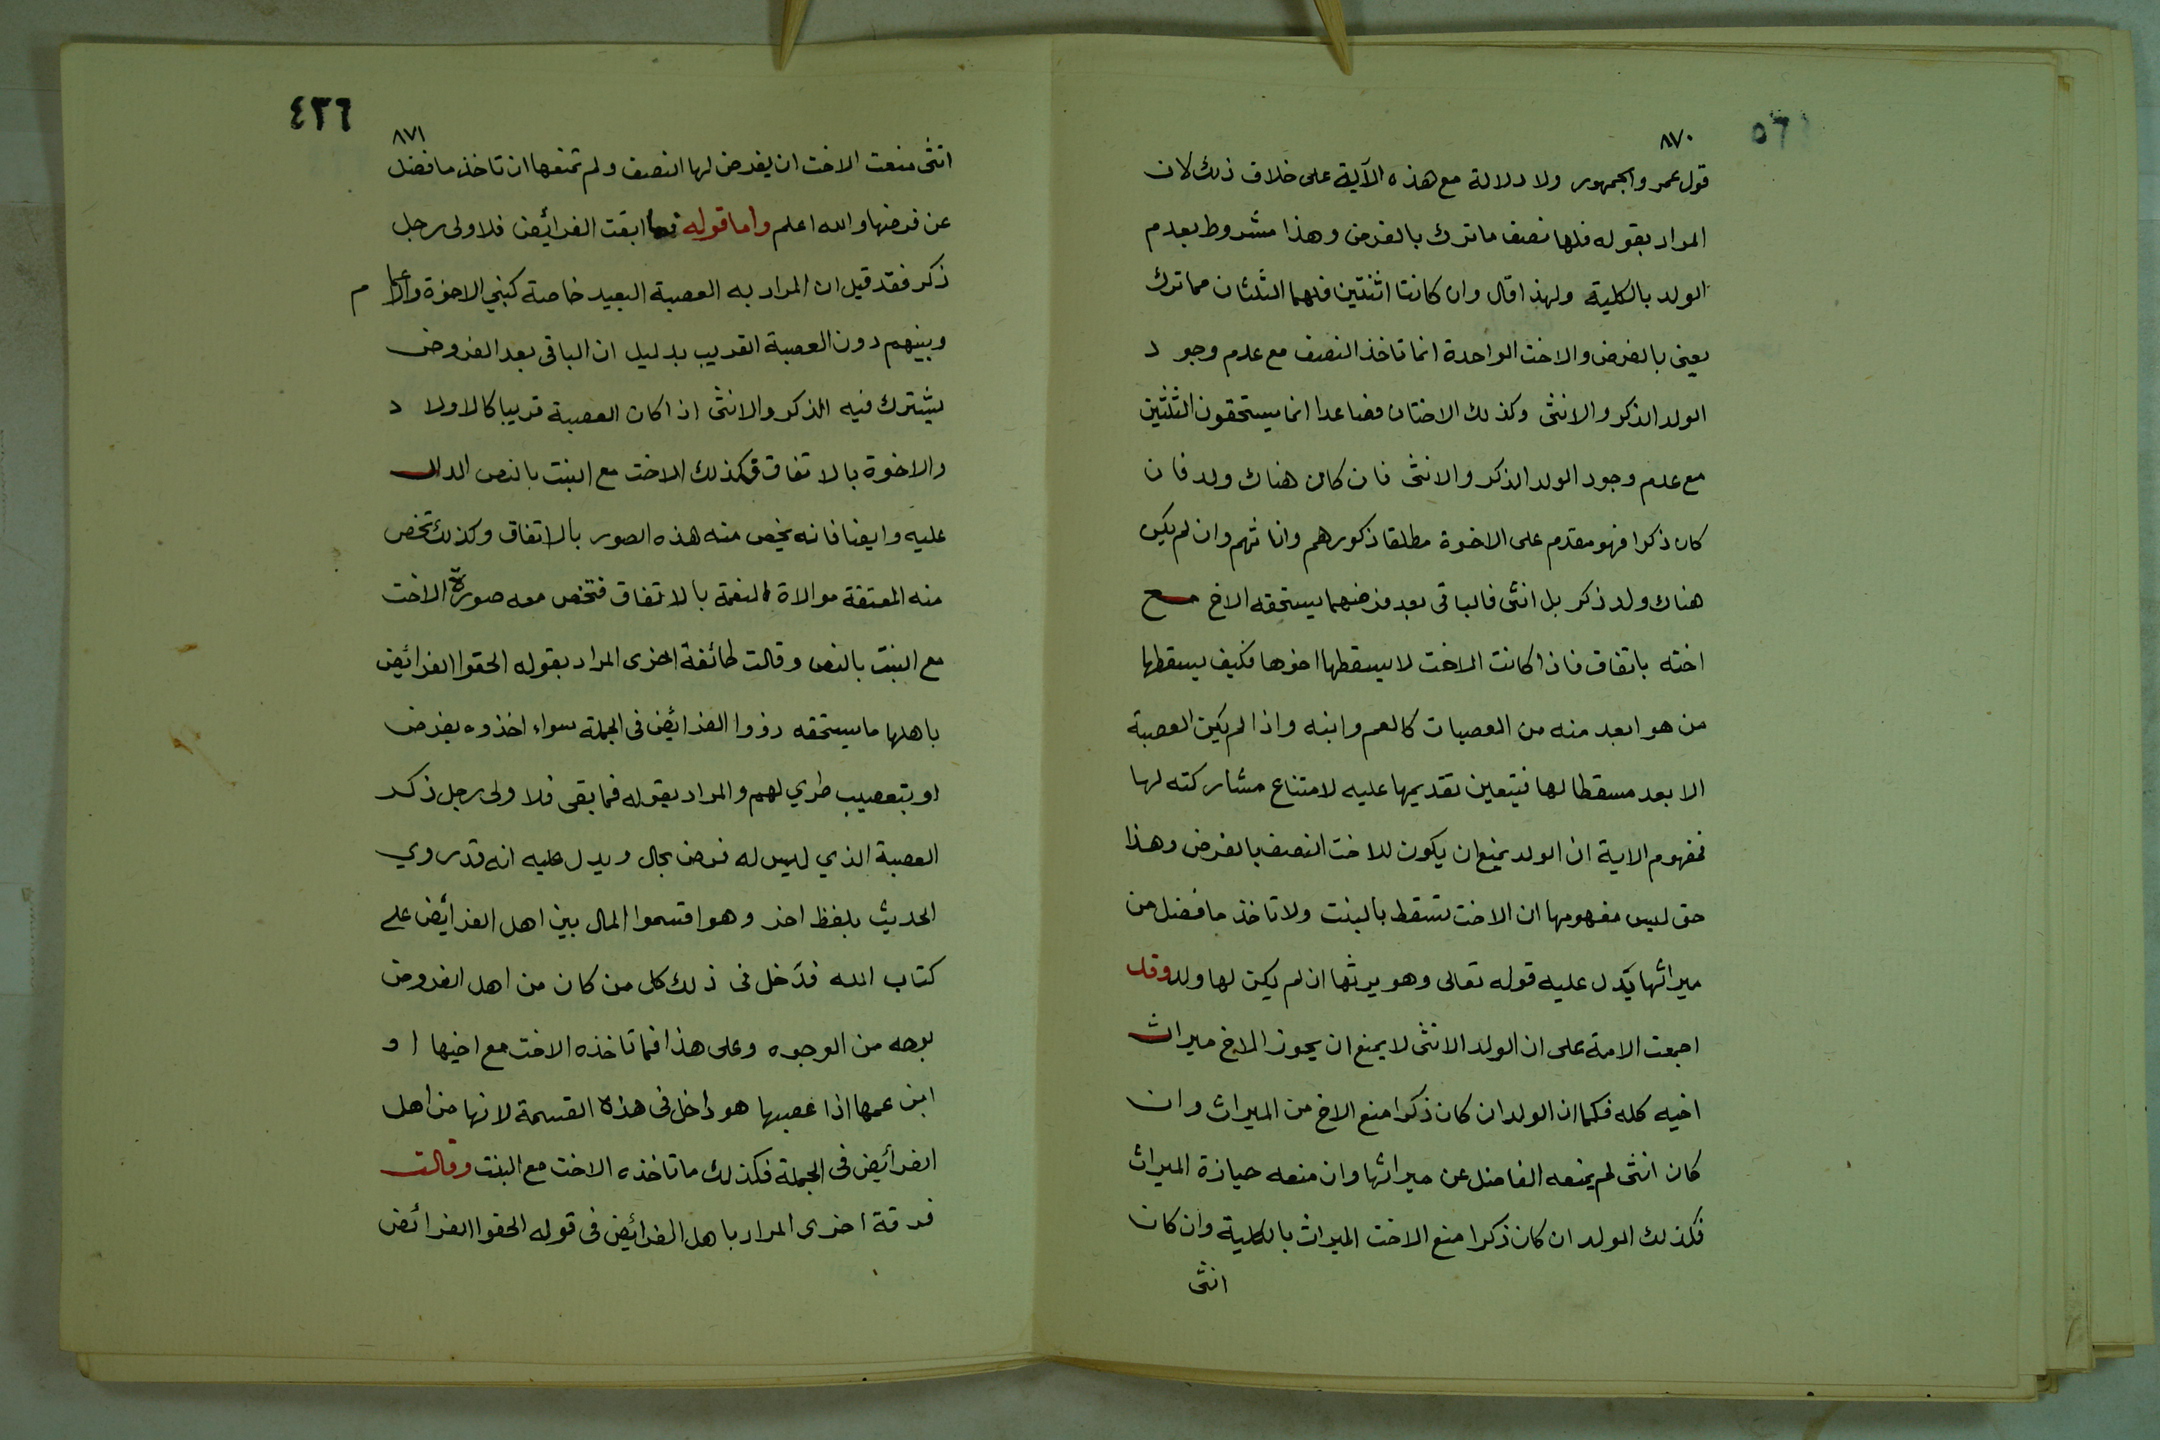 ٨٧٠
قول عمر والجمهور ولا دلالة مع هذه الآية على خلاف ذلك لان
المراد بقوله فلها نصف ما ترك بالفرض وهذا مشروط بعدم
الولد بالكلية ولهذا قال وان كانتا اثنتين فلهما الثلثان مما ترك
يعني بالفرض والاخت الواحدة انما تاخذ النصف مع عدم وجود
الولد الذكر والانثى وكذلك الاختان فصاعدا انما يستحقون الثلثين
مع عدم وجود الولد الذكر والانثى فان كان هناك ولد فان
كان ذكرا فهو مقدم على الاخوة مطلقا ذكورهم واناثهم وان لم يكن
هناك ولد ذكر بل انثى فالباقى بعد فرضهما يستحقه الاخ مع
اخته باتفاق فاذا كانت الاخت لا يسقطها اخوها فكيف يسقطها
من هو ابعد منه من العصبات كالعم وابنه واذا لم يكن العصبة
الا بعد مسقطا لها فيتعين تقديمها عليه لامتناع مشاركته لها
فمفهوم الاية ان الولد يمنع ان يكون للاخت النصف بالفرض وهذا
حق ليس مفهومها ان الاخت تسقط بالبنت ولا تاخذ ما فضل من
ميراثها يدل عليه قوله تعالى وهو يرثها ان لم يكن لها ولد وقد
اجمعت الامة على ان الولد الانثى لا يمنع ان يحوز الاخ ميراث
اخيه كله فكما ان الولد ان كان ذكرا منع الاخ من الميراث وان
كان انثى لم يمنعه الفاضل عن ميراثها وان منعه حيازة الميراث
فكذلك الولد ان كان ذكرا منع الاخت الميراث بالكلية وان كان
انثى
٤٣٦
٨٧١
انثى منعت الاخت ان يفرض لها النصف ولم تمنعها ان تاخذ ما فضل
عن فرضها والله اعلم واما قوله فما ابقت الفرائض فلاولى رجل
ذكر فقد قيل ان المراد به العصبة البعيد خاصة كبني الاخوة والاعمام
وبنيهم دون العصبة القريب بدليل ان الباقى بعد الفروض
يشترك فيه الذكر والانثى اذا كان العصبة قريبا كالاولاد
والاخوة بالاتفاق فكذلك الاخت مع البنت بالنص الدال
عليه وايضا فانه يخص منه هذه الصور بالاتفاق وكذلك تخص
منه المعتقة موالاة النعمة بالاتفاق فتخص معه صورة الاخت
مع البنت بالنص وقالت طائفة اخرى المراد بقوله الحقوا الفرائض
باهلها ما يستحقه ذووا الفرائض فى الجملة سواء اخذوه بفرض
او بتعصيب طري لهم والمراد بقوله فما بقى فلاولى رجل ذكر
العصبة الذي ليس له فرض بحال ويدل عليه انه قد روي
الحديث بلفظ اخر وهو اقسموا المال بين اهل الفرائض على
كتاب الله فدخل فى ذلك كل من كان من اهل الفروض
بوجه من الوجوه وعلى هذا فما تاخذه الاخت مع اخيها او
ابن عمها اذا عصبها هو داخل فى هذه القسمة لانها من اهل
الفرائض فى الجملة فكذلك ما تاخذه الاخت مع البنت وقالت
فرقة اخرى المراد باهل الفرائض فى قوله الحقوا الفرائض